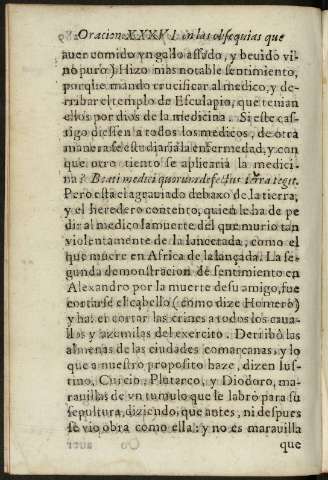 Oracion XXXVI. in las obsequias que
auer comido vn gallo assado, y beuido vi-
no puro) Hizo mas notable sentimiento,
porque mandò crucificar al medico, y de-
rribar el templo de Esculapio, que tenian
ellos por dios de la medicina. Si este cas-
tigo diessen a todos los medicos, de otra
manera se estudiaria la enfermedad, y con
que otro tiento se aplicaria la medici-
na? Beati medici quorum defectus terra tegit.
Pero està el agrauiado debaxo de la tierra,
y el heredero contento, quien le ha de pe
dir al medico la muerte del que murio tan
violentamente de la lancetada, como el
que muere en Africa de la lançada. La se-
gunda demonstracion de sentimiento en
Alexandro por la muerte de su amigo, fue
cortarse el cabello (como dize Homero)
y hazer cortar las crines a todos los caua-
llos y azemilas del exercito. Derribò las
almenas de las ciudades comarcanas, y lo
que a nuestro proposito haze, dizen Ius-
tino, Curcio, Plutarco, y Diodoro, ma-
rauillas de vn tumulo que le labrò para su
sepultura, diziendo, que antes, ni despues
se vio obra como ella: y no es marauilla
que